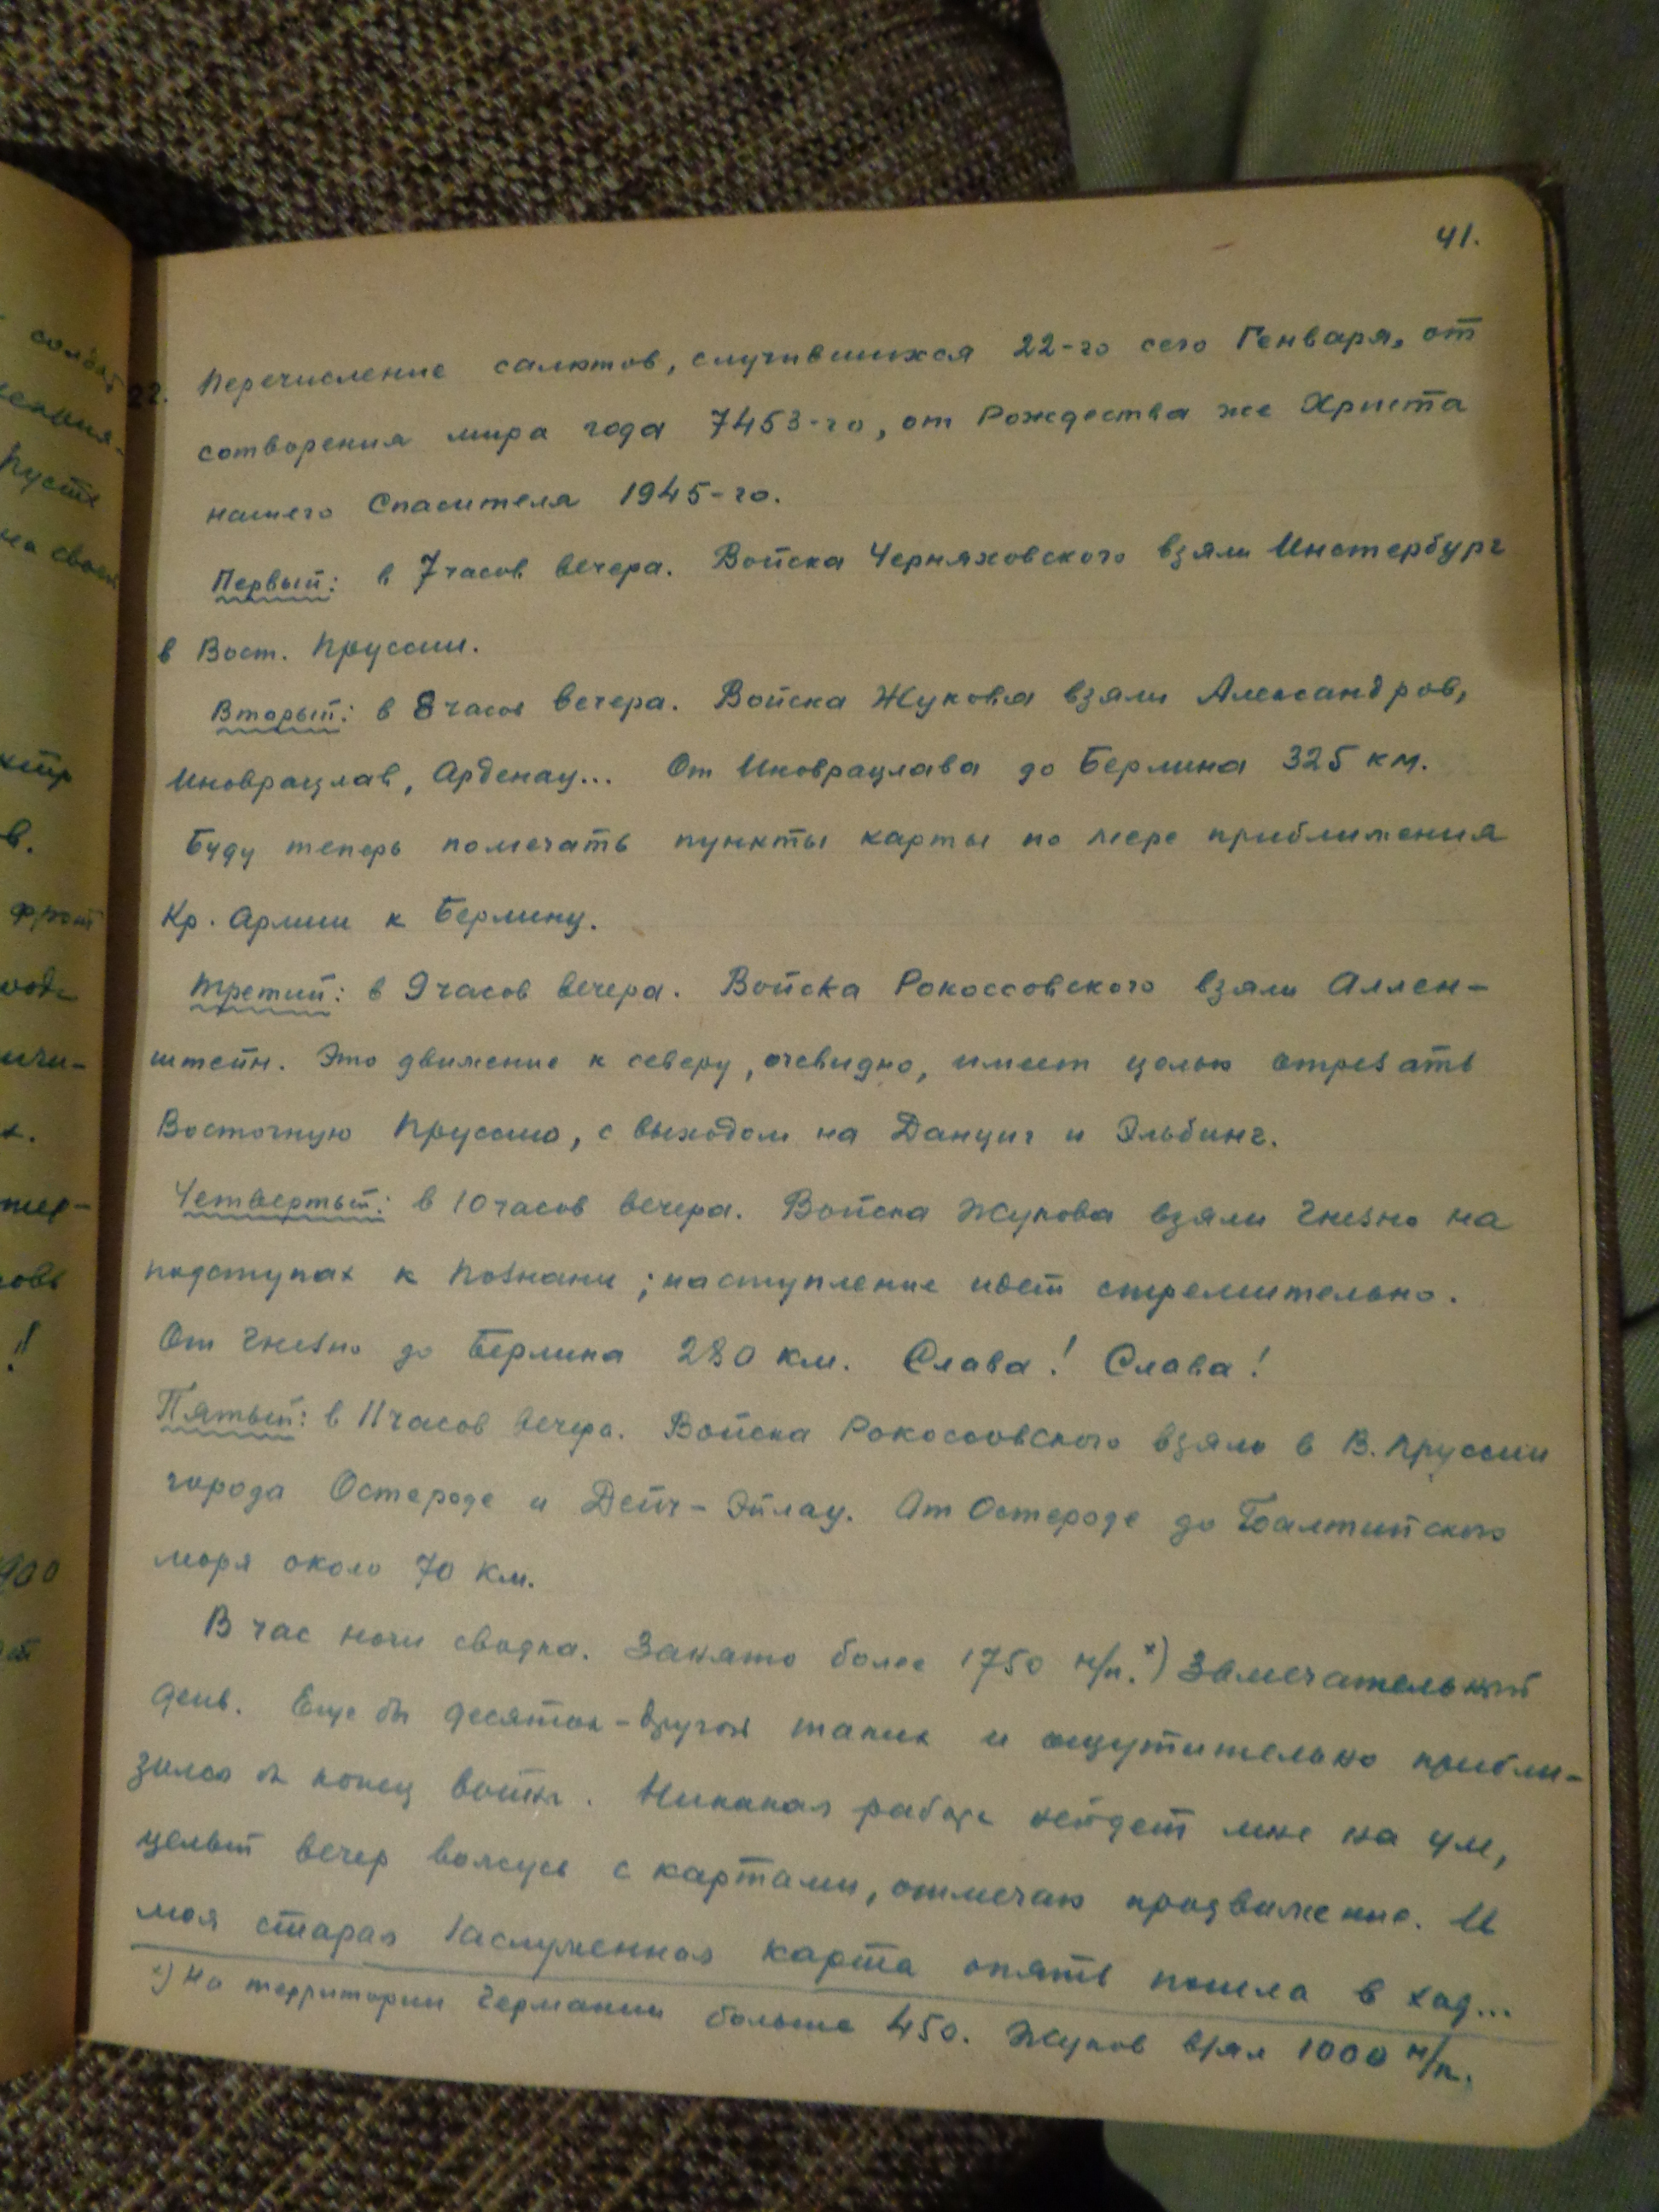 41.
22. Перечисление салютов, случившихся 22-го сего Генваря, от
сотворения мира года 7453-го, от Рождества же Христа
нашего Спасителя 1945-го.
Первый: в 7 часов вечера. Войска Черняховского взяли Инстербург
в Вост. Пруссии.
Вторый: в 8 часов вечера. Войска Жукова взяли Александров,
Иноврацлав, Арденау... От Иноврацлава до Берлина 325 км.
Буду теперь помечать пункты карты по мере приближения
Кр. Армии к Берлину.
Третий: в 9 часов вечера. Войска Рокоссовского взяли Аллен-
штейн. Это движение к северу, очевидно, имеет целью отрезать
Восточную Пруссию, с выходом на Данциг и Эльбинг.
Четвертый: в 10 часов вечера. Войска Жукова взяли Гнезно на
подступах к Познани; наступление идет стремительно.
От Гнезно до Берлина 280 км. Слава! Слава!
Пятый: в 11 часов вечера. Войска Рокоссовского взяли в В. Пруссии
города Остероде и Дейч-Эйлау. От Остероде до Балтийского
моря около 70 км.
В час ночи сводка. Занято более 1750 н/п. х) Замечательный
день. Еще бы десяток-другой таких и ощутительно прибли-
зился бы конец войны. Никакая работа нейдет мне на ум,
целый вечер вожусь с картами, отмечаю продвижение. И
моя старая заслуженная карта опять пошла в ход...
х) На территории Германии больше 450. Жуков взял 1000 н/п.
солдат
Пусть
на своей
в.
фронт
х.
!
900